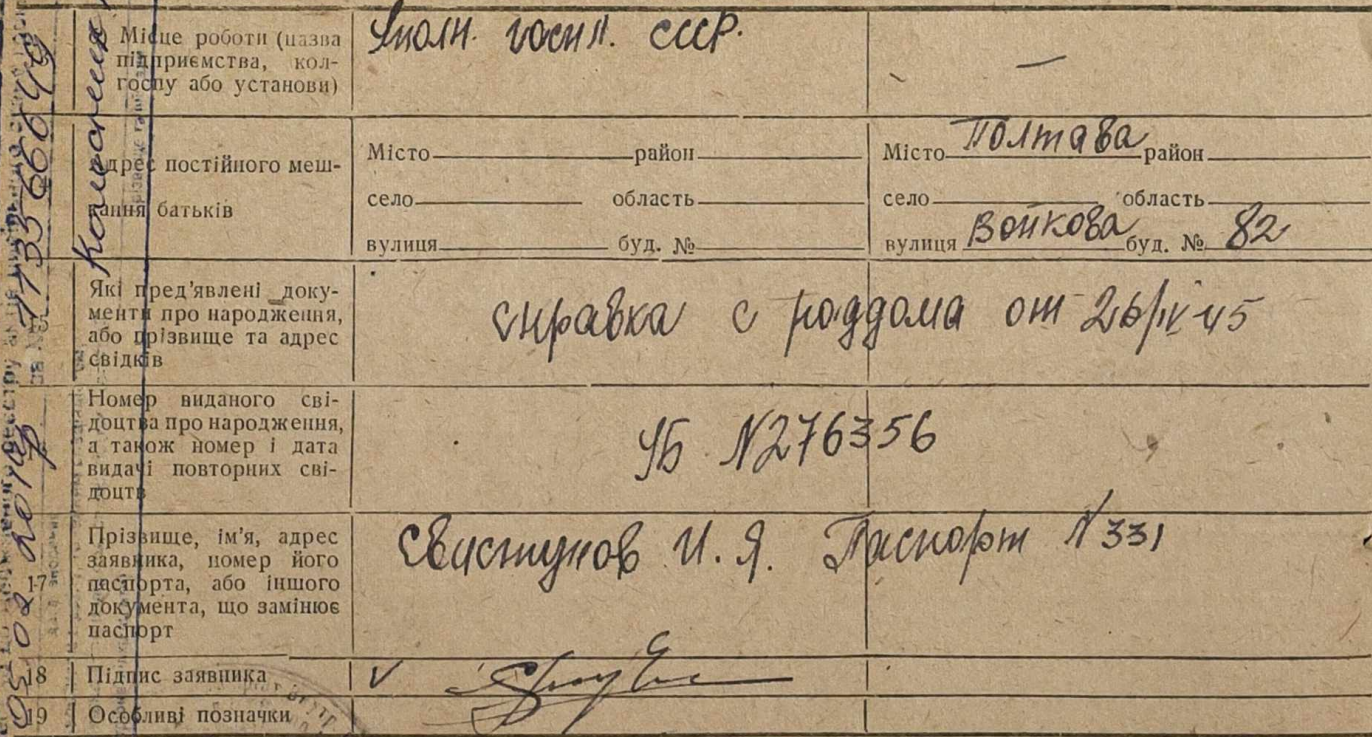 Місце роботи (назва
підприємства, кол-
госпу або установи)
госп. СССР. —
Адрес постійного меш-
кання батьків
Місто район Місто Полтава район
село область село область
вулиця буд. № вулиця Войкова буд. № 82
Які пред'явлені доку-
менти про народження,
або прізвище та адрес
свідків
справка с роддома от 26/IV 45
Номер виданого сві-
доцтва про народження,
а також номер і дата
видачі повторних сві-
доцтв
УБ N276356
17
Прізвище, ім'я, адрес
заявника, номер його
паспорта, або іншого
документа, що замінює
паспорт
Свистунов И. Я. Паспорт N 331
18 Підпис заявника V
19 Особливі позначки